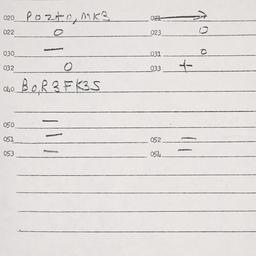 020 Pozto, MK3 021 →
022 0 023 0
030 — 031 0
032 0 033 +
040 Bo, R3FK3S
050 —
051 — 052 —
053 — 054 —